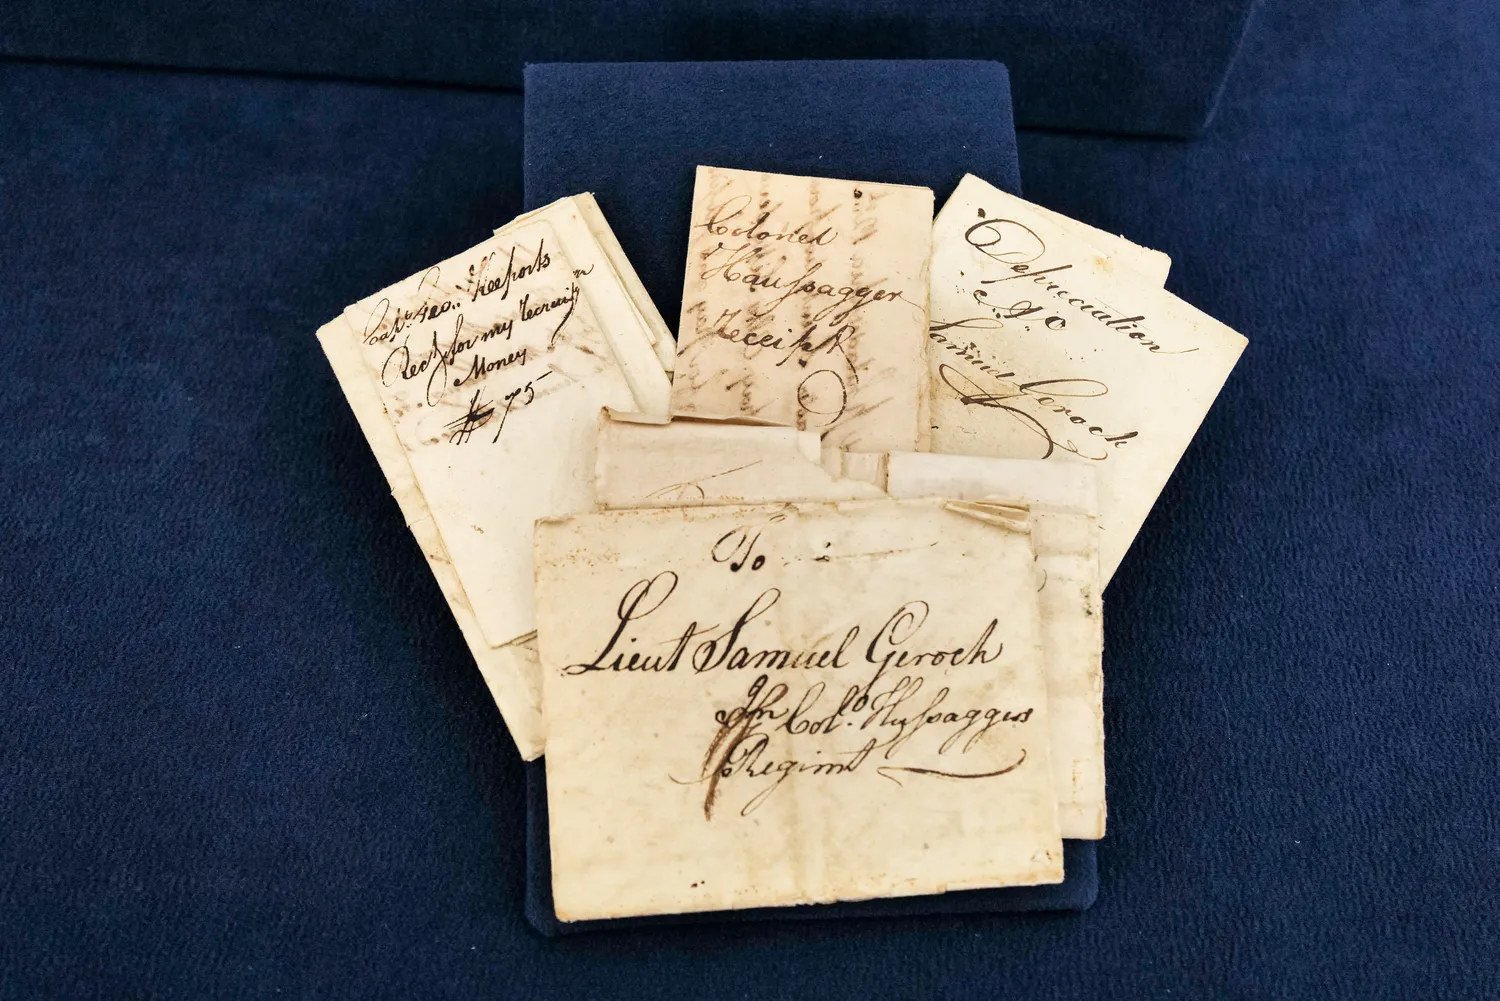 Capt. Geo. Keeports
Rect. for my Recruitg
Money
75
Colonel
Haussagger
Receipt
Depreciation
Samuel Gerock
To
Lieut Samuel Gerock
In Colo. Hussaggers
Regimt